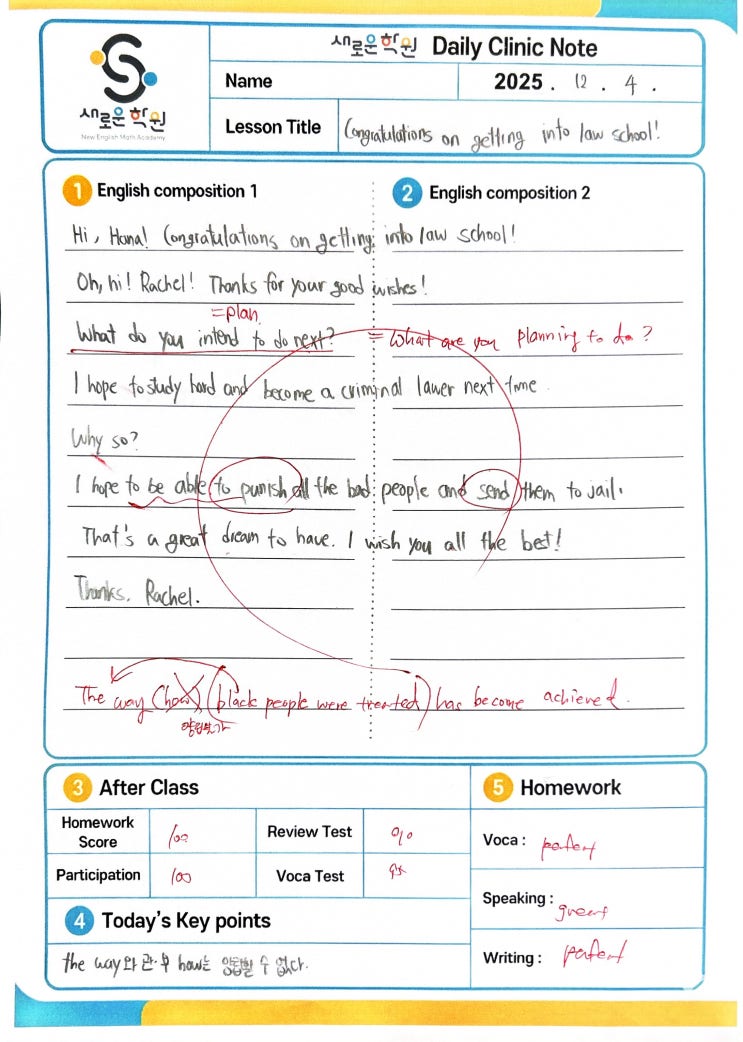 새로운학원
New English Math Academy
새로운학원 Daily Clinic Note
Name
2025 . 12 . 4 .
Lesson Title
Congratulations on getting into law school!
1 English composition 1
2 English composition 2
Hi, Hana! Congratulations on getting into law school!
Oh, hi! Rachel! Thanks for your good wishes!
=plan
What do you intend to do next? = What are you planning to do?
I hope to study hard and become a criminal lawer next time.
Why so?
I hope to be able to punish all the bad people and send them to jail.
That's a great dream to have. I wish you all the best!
Thanks, Rachel.
The way (how) (black people were treated) has become achieved.
양립불가
3 After Class
5 Homework
Homework Score
100
Review Test
Voca :
Participation
100
Voca Test
Speaking :
great
4 Today's Key points
Writing :
the way와 관·부 how는 양립할 수 없다.